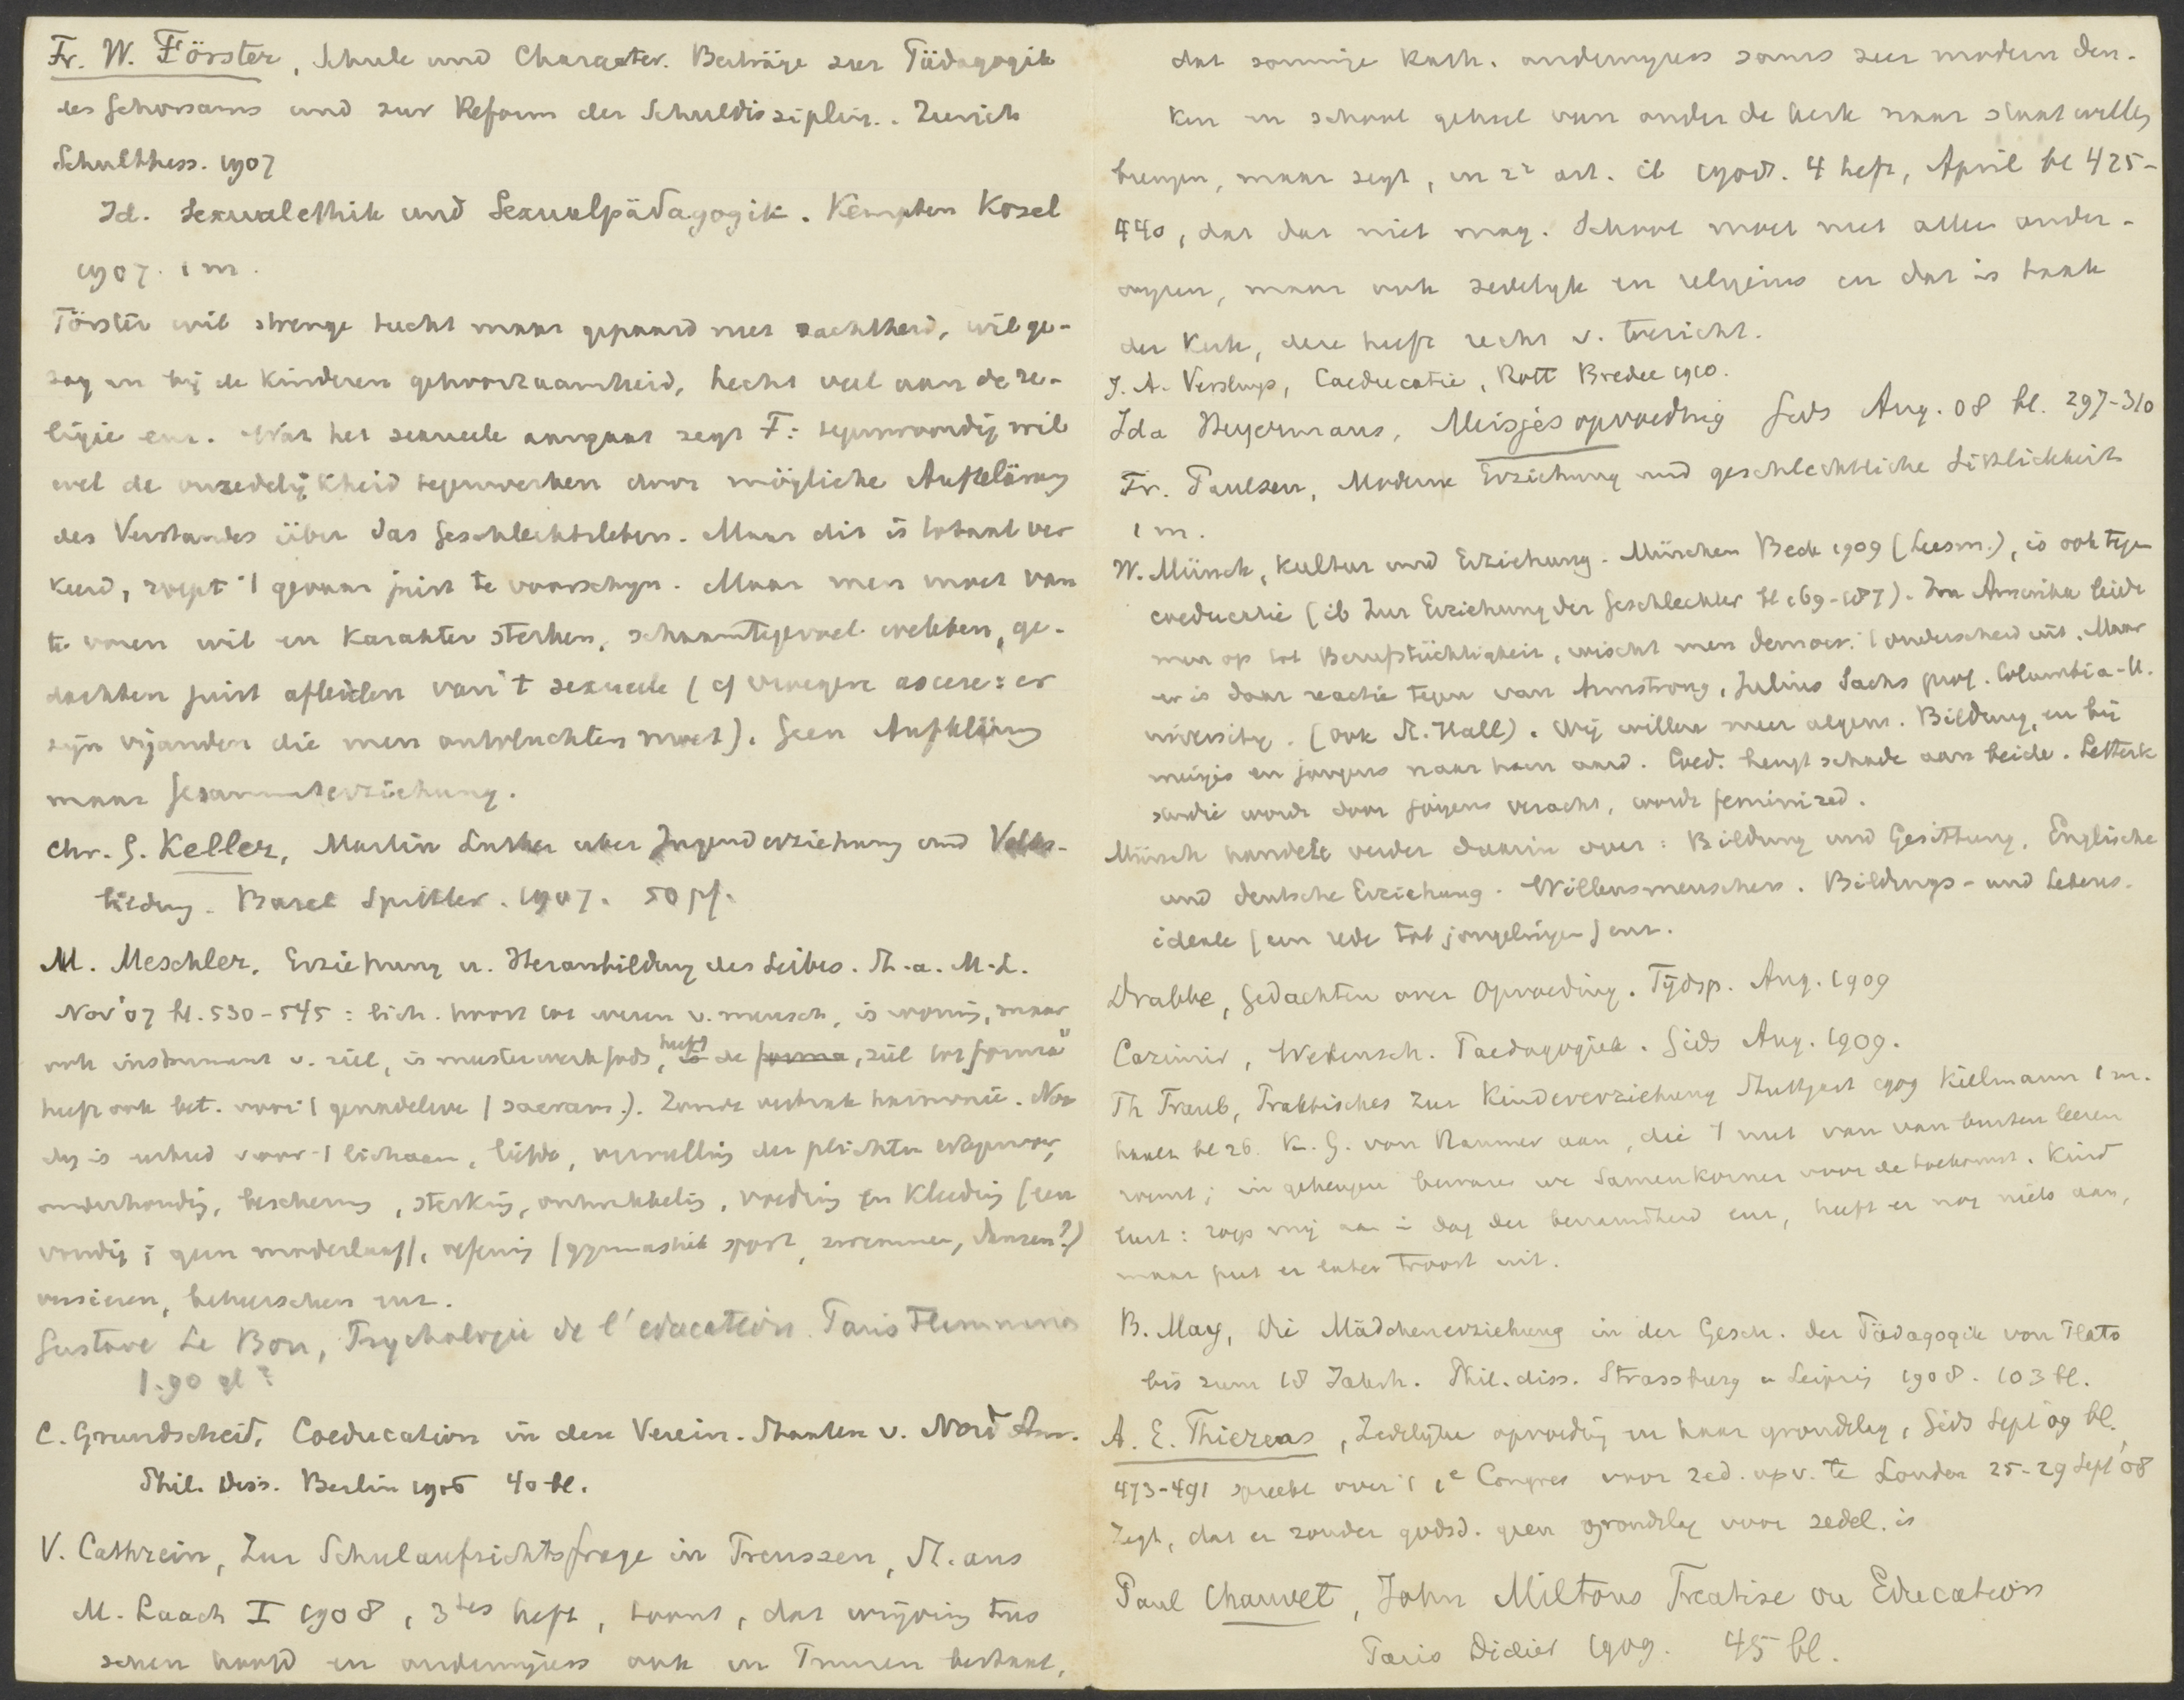 Fr. W. Förster, Schule und Character. Beiträge zur Pädagogik
des Gehorsams und zur Reform der Schuldisziplin. Zurich
Schulthess. 1907
Id. Sexualethik und Sexualpädagogik. Kempten Kosel
1907. 1 m.
Förster wil strenge tucht maar gepaard met zachtheid, wil ge-
zag en bij de kinderen gehoorzaamheid, hecht veel aan de re-
ligie enz. Wat het sexueele aangaat zegt F: tegenwoordig wil
wel de onzedelijkheid tegenwerken door mögliche Aufklärung
des Verstandes über das Geschlechtsleben. Maar dit is totaal ver
keerd, roept 't gevaar juist te voorschijn. Maar men moet van
te voren wil en karakter sterken, schaamtegevoel wekken, ge-
dachten juist afleiden van 't sexueele (cf vroegere ascese: er
zijn vijanden die men ontvluchten moet). Geen Aufklärung
maar Gesammterziehung.
Chr. G. Keller, Martin Luther uber Jugenderziehung und Volks-
bildung. Basel Spittler. 1907. 50 pf.
M. Meschler, Erziehung u. Heranbildung des Leibes. St. a. M.L.
Nov '07 bl. 530-545: lich. hoort tot wezen v. mensch, is woning, maar
ook instrument v. ziel, is meesterwerk Gods, heeft de forma, ziel tot forma
heeft ook bet. voor 't genadeleve (sacram.). Zonde verbrak harmonie. Noo
dig is arbeid voor 't lichaam, liefde, vervulling der plichten ertegenover,
onderhouding, bescherming, sterking, ontwikkeling, voeding en kleeding (een
voudig; geen moderlast), oefening (gymnastiek sport, zwemmen, dansen?)
versieren, beheerschen enz.
Gustave Le Bon, Psychologie de l'education. Paris Flammarion
1.90 gl?
C. Grundscheid, Coeducation in den Verein. Staaten v. Nord Am.
Phil. Diss. Berlin 1906 40 bl.
V. Cathrein, Zur Schulaufsichtsfrage in Preussen, St. aus
M. Laach I 1908, 3tes heft, toont, dat wrijving tus
schen hoofd en onderwijzers ook in Pruisen bestaat,
dat sommige Kath. onderwijzers soms zeer modern den-
ken en school geheel van onder de kerk naar staat willen
brengen, maar zegt, in 2e art. ib 1908. 4 heft, April bl 425-
440, dat dat niet mag. School moet niet alleen onder-
wijzen, maar ook zedelijk en religieus en dat is taak
der Kerk, deze heeft recht v. toezicht.
J. A. Versluys, Coeducatie, Rott Bredée 1910.
Ida Heyermans, Meisjesopvoeding Gids Aug. 08 bl. 297-310
Fr. Paulsen, Moderne Erziehung und geschlechtliche Sittlichkeit
1 m.
W. Münch, Kultur und Erziehung. München Beck 1909 (Leesm.), is ook tegen
coeducatie (ib Zur Erziehung der Geschlechter bl 169-187). In Amerika leidt
men op tot Berufstüchtigkeit, wischt men democr. 't onderscheid uit. Maar
er is daar reactie tegen van Armstrong, Julius Sachs prof. Columbia-U.
niversity. (ook St. Hall). Wij willen meer algem. Bildung, en bij
meisjes en jongens naar hun aard. Coed. brengt schade aan beide. Letterk
studie wordt door jongens veracht, wordt feminized.
Münch handelt verder daarin over: Bildung und Gesittung. Englische
und deutsche Erziehung. Willensmenschen. Bildungs- und Lebens-
ideale (een rede tot jongelingen) enz.
Drabbe, Gedachten over Opvoeding. Tijdsp. Aug. 1909
Casimir, Wetensch. Paedagogiek. Gids Aug. 1909.
Th Traub, Praktisches zur Kindererziehung Stuttgart 1909 Kielmann 1 m.
haalt bl 26 K. G. von Raumer aan, die 't nut van van buiten leeren
roemt; in geheugen bewaren we Samenkorner voor de toekomst. Kind
leert: roep mij aan in dag der benauwdheid enz, heeft er nog niets aan,
maar put er later troost uit.
B. May, Die Mädchenerziehung in der Gesch. der Pädagogik von Plato
bis zum 18 Jahrh. Phil. diss. Strassburg u Leipzig 1908. 103 bl.
A. E. Thierens, Zedelijke opvoeding en haar grondslag, Gids Sept '09 bl.
473-491 spreekt over 't 1e Congres voor zed. opv. te Londen 25-29 Sept '08
Zegt, dat er zonder godsd. geen grondslag voor zedel. is
Paul Chauvet, John Miltons Treatise on Education
Paris Didier 1909. 45 bl.